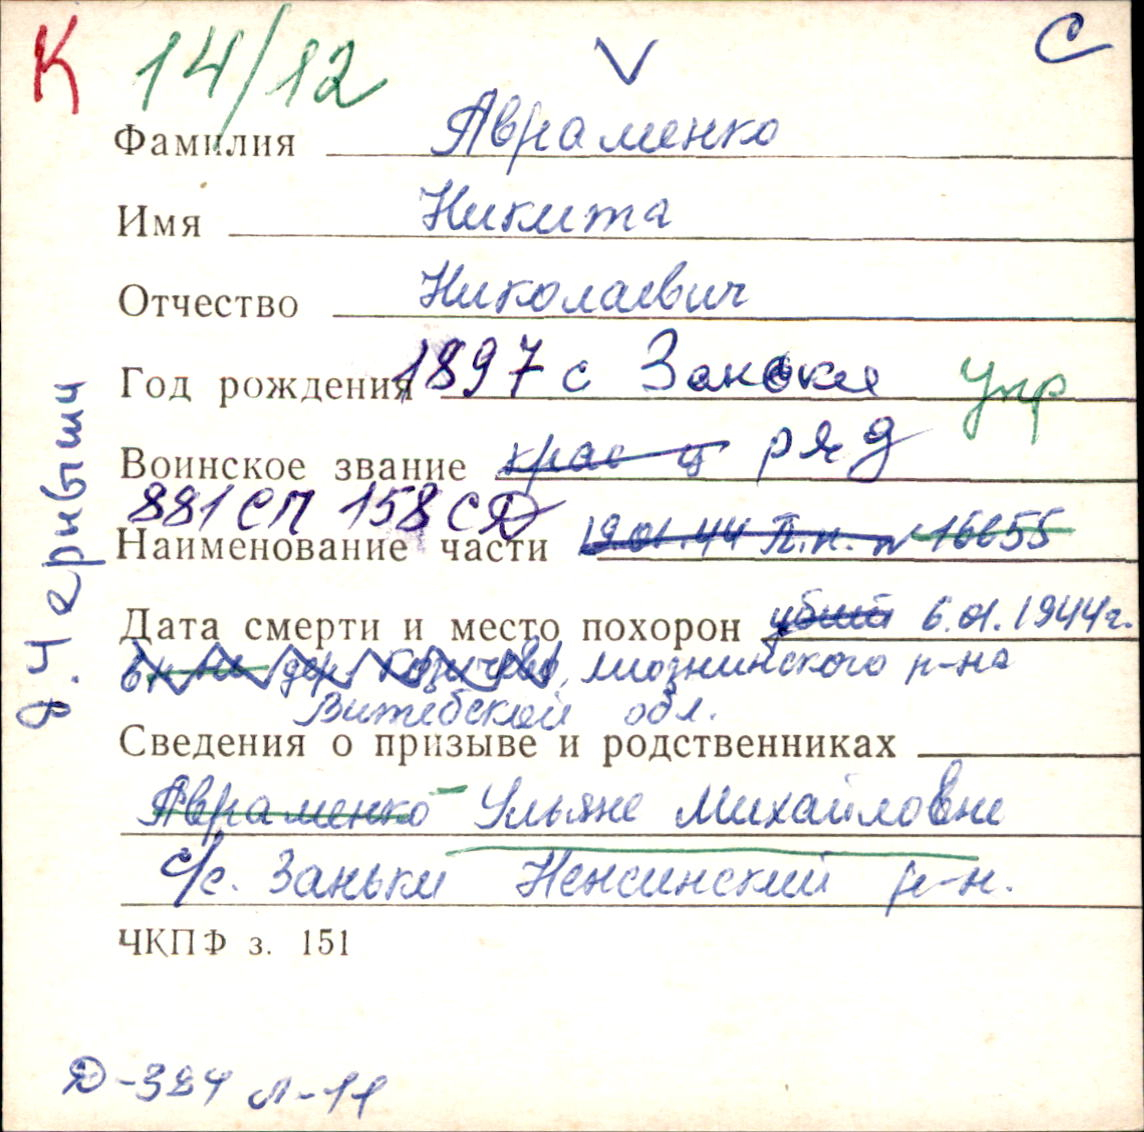 К 14/12 V С
Фамилия Авраменко
Имя Никита
Отчество Николаевич
Год рождения 1897 с Заньки Упр
Воинское звание крас-ц ряд
881 СП 158 СД
Наименование части 19.01.44 П.п. №
Дата смерти и место похорон убит 6.01.1944г.
дер. Лиознинского р-на
Витебской обл.
д. Черныши
Сведения о призыве и родственниках
Авраменко Ульяне Михайловне
с/с. Заньки Неженский р-н.
ЧКПФ з. 151
Д-324 л-11